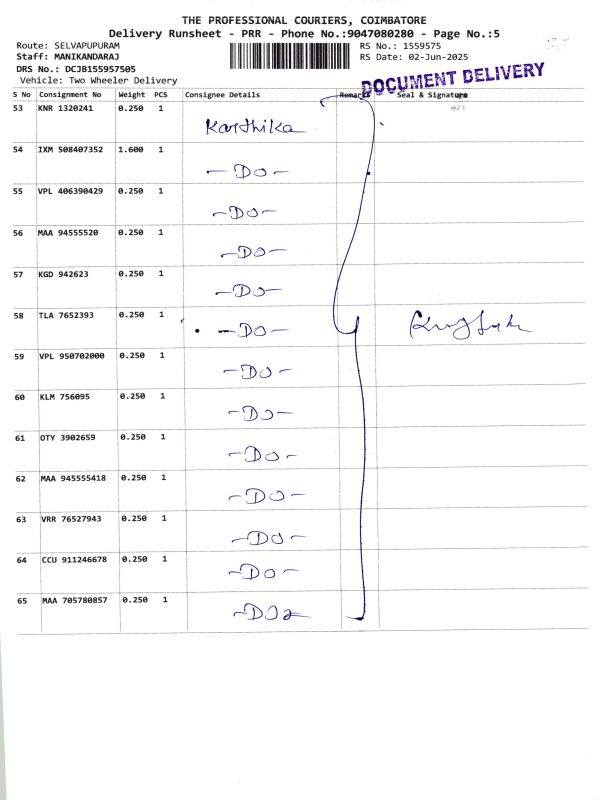 THE PROFESSIONAL COURIERS, COIMBATORE
Delivery Runsheet - PRR - Phone No.:9047080280 - Page No.:5
Route: SELVAPUPURAM
RS No.: 1559575
Staff: MANIKANDARAJ
RS Date: 02-Jun-2025
DRS No.: DCJB155957505
Vehicle: Two Wheeler Delivery
DOCUMENT DELIVERY
S No Consignment No Weight PCS Consignee Details Remark Seal & Signature
53 KNR 1320241 0.250 1
Karthika
54 IXM 508407352 1.600 1
-DO-
55 VPL 406390429 0.250 1
-DO-
56 MAA 94555520 0.250 1
-DO-
57 KGD 942623 0.250 1
-DO-
58 TLA 7652393 0.250 1
-DO-
59 VPL 950702000 0.250 1
-DO-
60 KLM 756095 0.250 1
-DO-
61 OTY 3902659 0.250 1
-DO-
62 MAA 945555418 0.250 1
-DO-
63 VRR 76527943 0.250 1
-DO-
64 CCU 911246678 0.250 1
-DO-
65 MAA 705780857 0.250 1
-DO-